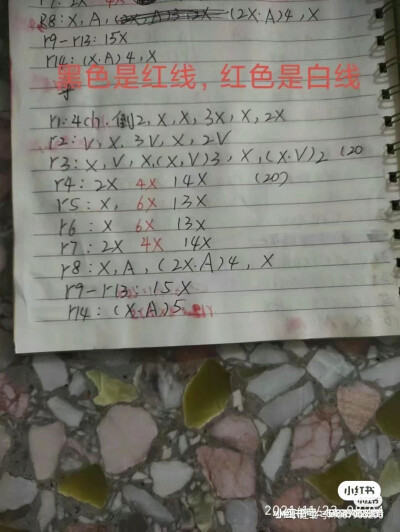 r7: 2X 4X
R8: X, A, (2X·A)4, X
r9-r13: 15X
r14: (X·A)4, X
黑色是红线，红色是白线
r1: 4ch, 倒2, X, X, 3X, X, 2X
r2: V, X, 3V, X, 2V
r3: X, V, X, (X, V)3, X, (X·V)2 (20
r4: 2X 4X 14X (20)
r5: X, 6X 13X
r6: X 6X 13X
r7: 2X 4X 14X
r8: X, A, (2X·A)4, X
r9-r13: 15X
r14: (X·A)5
小红书
小红书